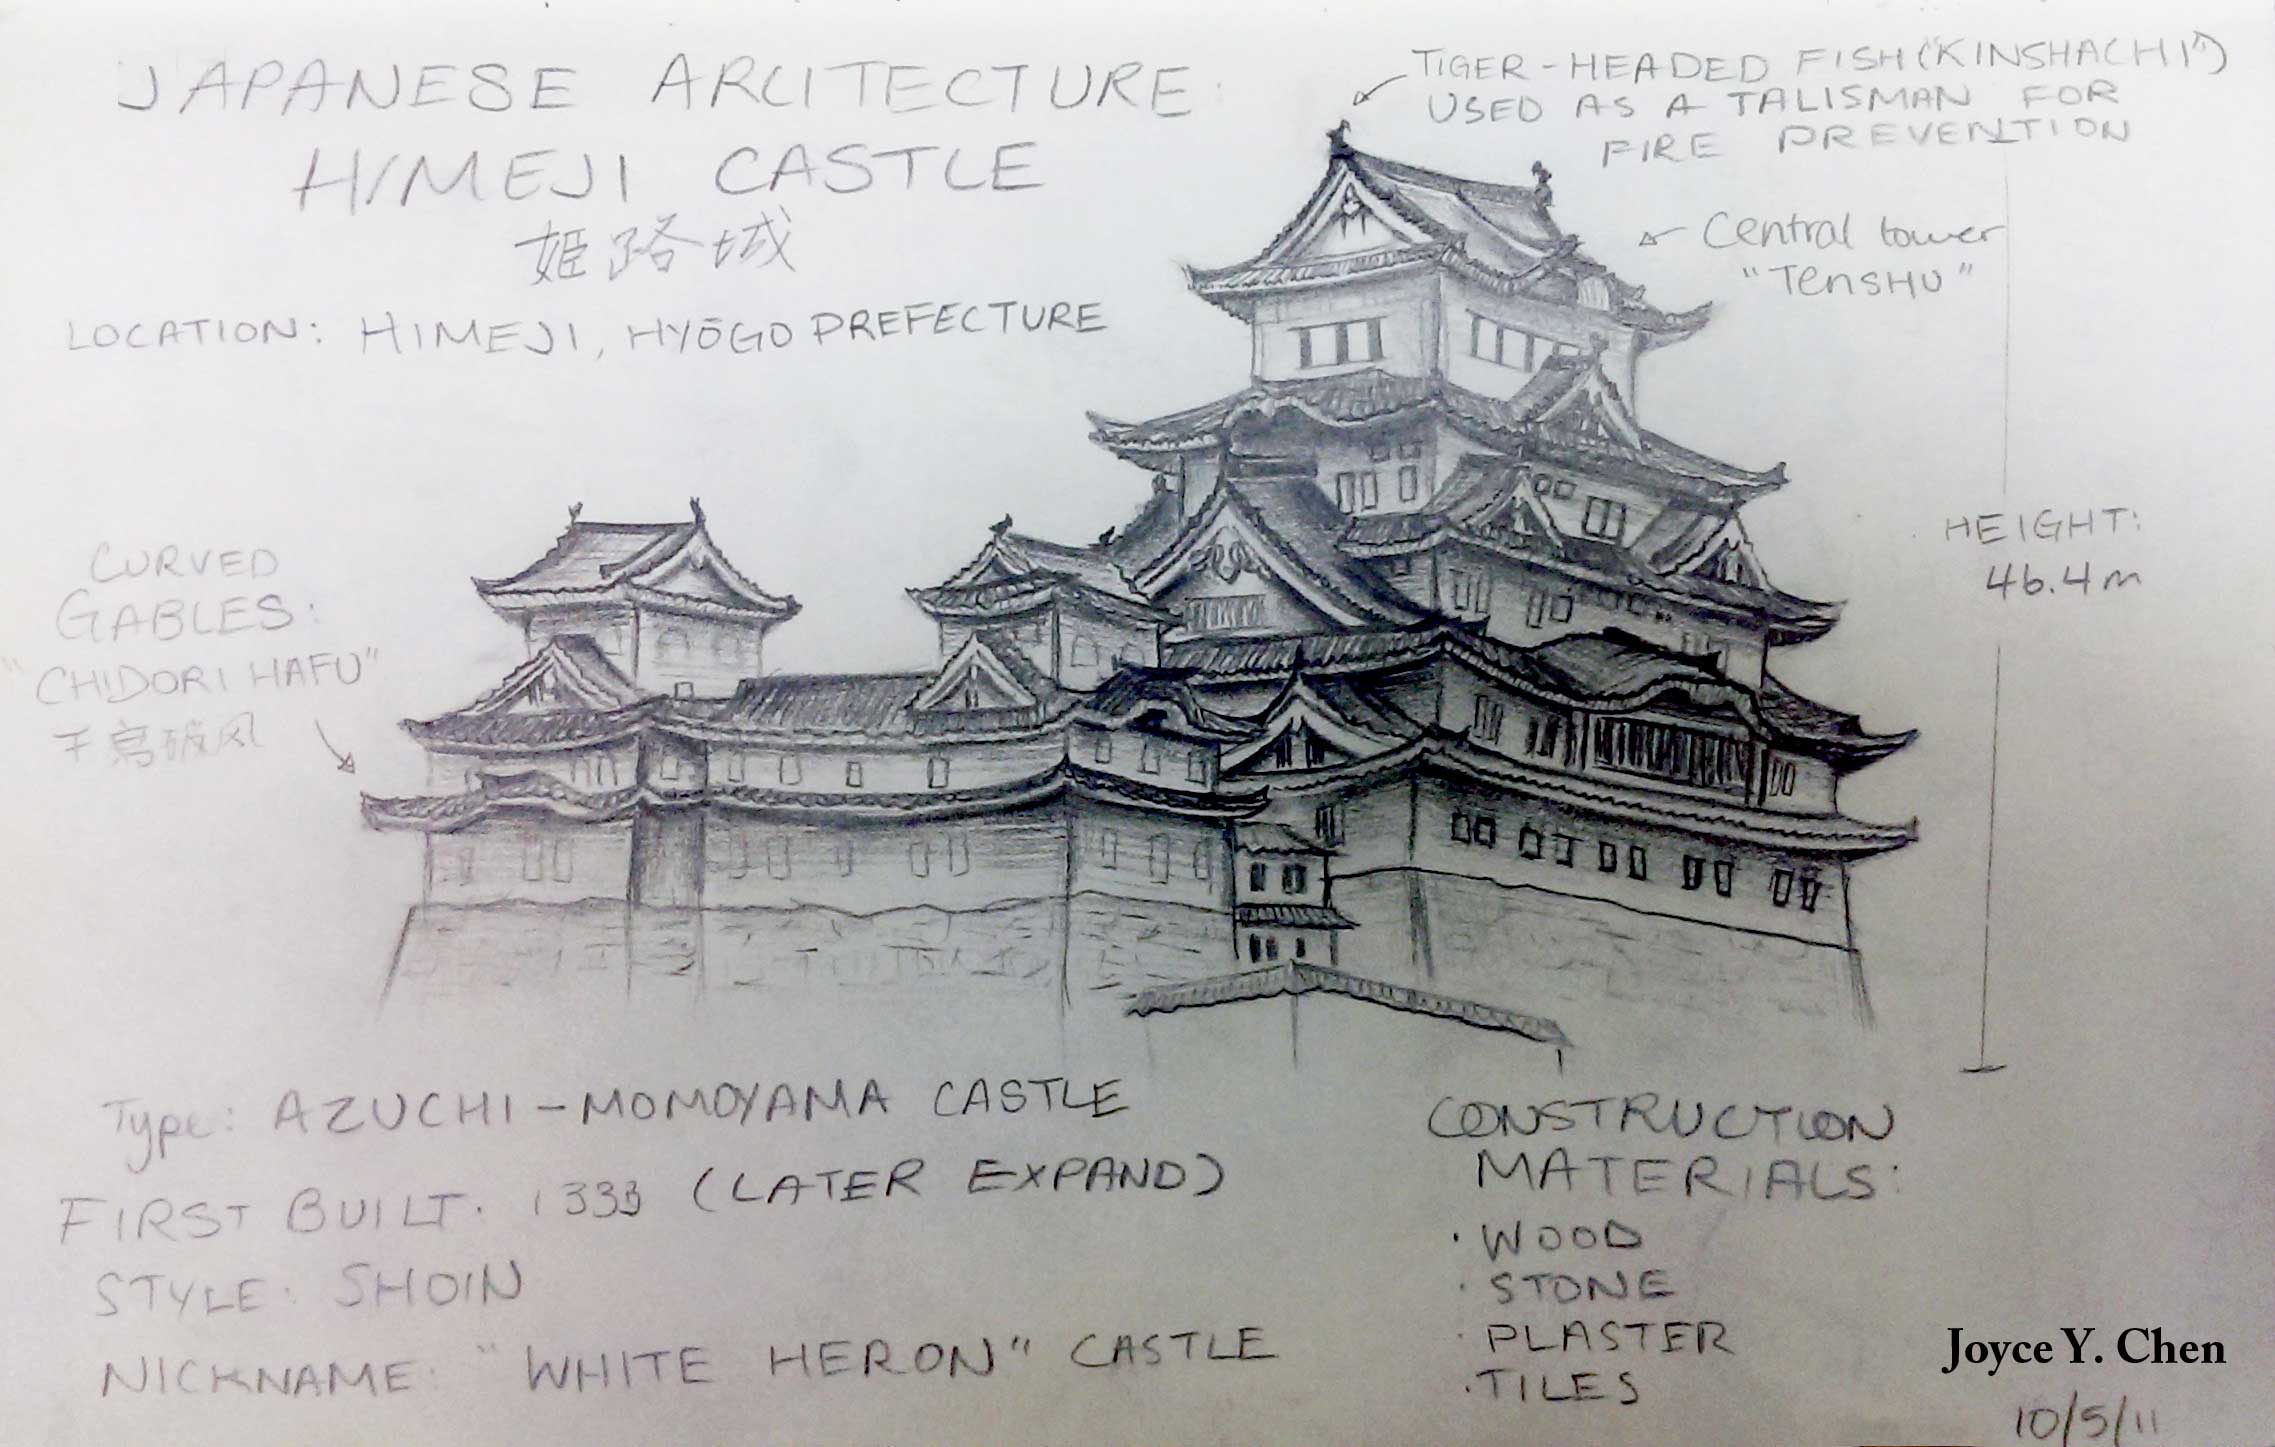 JAPANESE ARCITECTURE:
HIMEJI CASTLE
姫路城
LOCATION: HIMEJI, HYŌGO PREFECTURE
TIGER-HEADED FISH ("KINSHACHI")
USED AS A TALISMAN FOR
FIRE PREVENTION
Central tower
"TENSHU"
HEIGHT:
46.4m
CURVED
GABLES:
"CHIDORI HAFU"
千鳥破风
Type: AZUCHI-MOMOYAMA CASTLE
FIRST BUILT: 1333 (LATER EXPAND)
STYLE: SHOIN
NICKNAME: "WHITE HERON" CASTLE
CONSTRUCTION
MATERIALS:
· WOOD
· STONE
· PLASTER
· TILES
Joyce Y. Chen
10/5/11